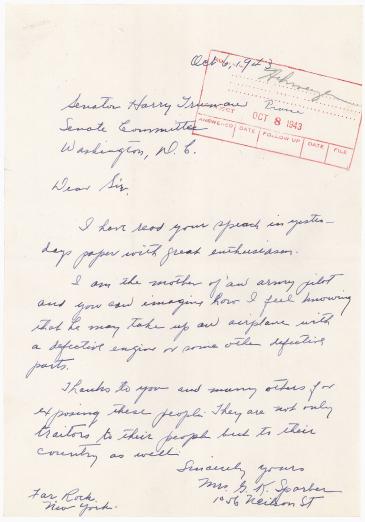 Oct 6, 1943
OCT 8 1943
ANSWERED DATE FOLLOW UP DATE FILE
Senator Harry Trueman
Senate Committee
Washington, D. C.
Dear Sir,
I have read your speach in yester-
days paper with great enthusiasm.
I am the mother of an army pilot
and you can imagine how I feel knowing
that he may take up an airplane with
a defective engine or some other defective
parts.
Thanks to you and many others for
exposing these people. They are not only
traitors to their people but to their
country as well.
Sincerely yours
Mrs. G. K. Sparber
1056 Neilson St
Far Rock.
New York.